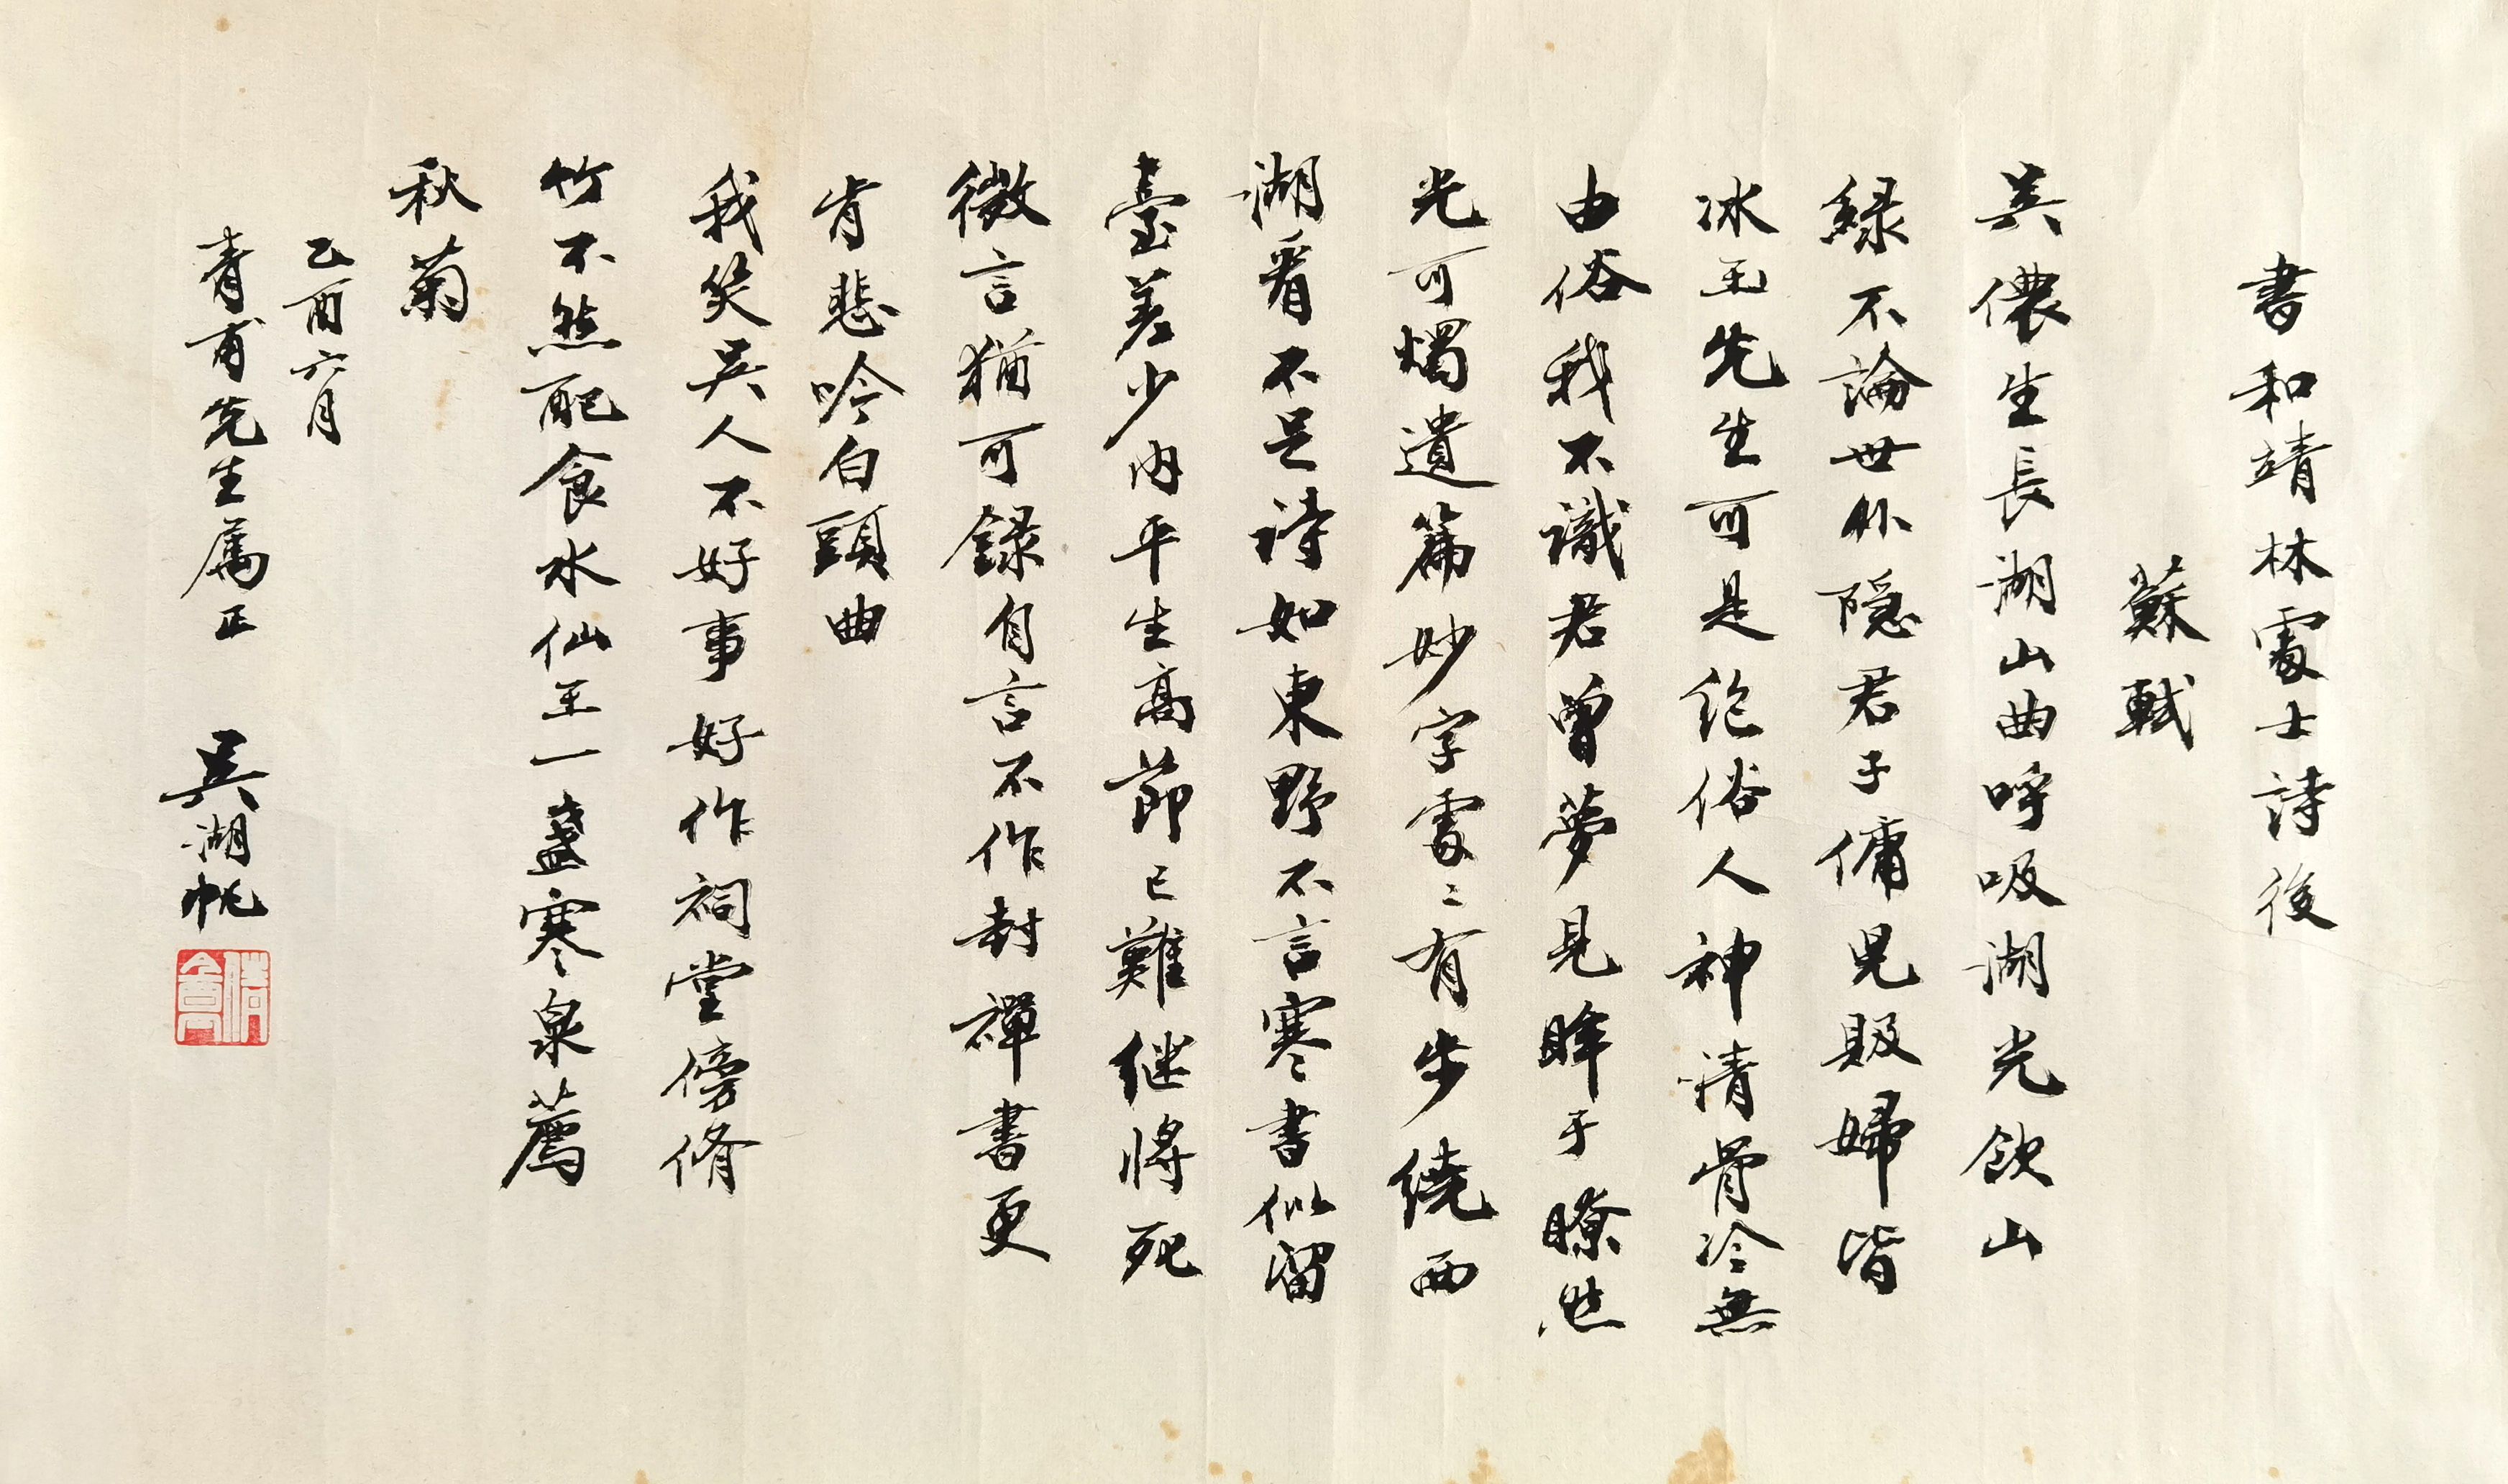 書和靖林處士詩後
蘇軾
吴儂生長湖山曲呼吸湖光飲山
緑不論世外隱君子傭兒販婦皆
冰玉先生可是絶俗人神清骨冷無
由俗我不識君曾夢見眸子瞭然
光可燭遺篇妙字處〻有步繞西
湖看不足詩如東野不言寒書似留
臺差少肉平生高節已難継將死
微言猶可録自言不作封禪書更
肯悲吟白頭曲
我笑吴人不好事好作祠堂傍脩
竹不然配食水仙王一盞寒泉薦
秋菊
乙酉六月
青甫先生屬正 吴湖帆
倩盦